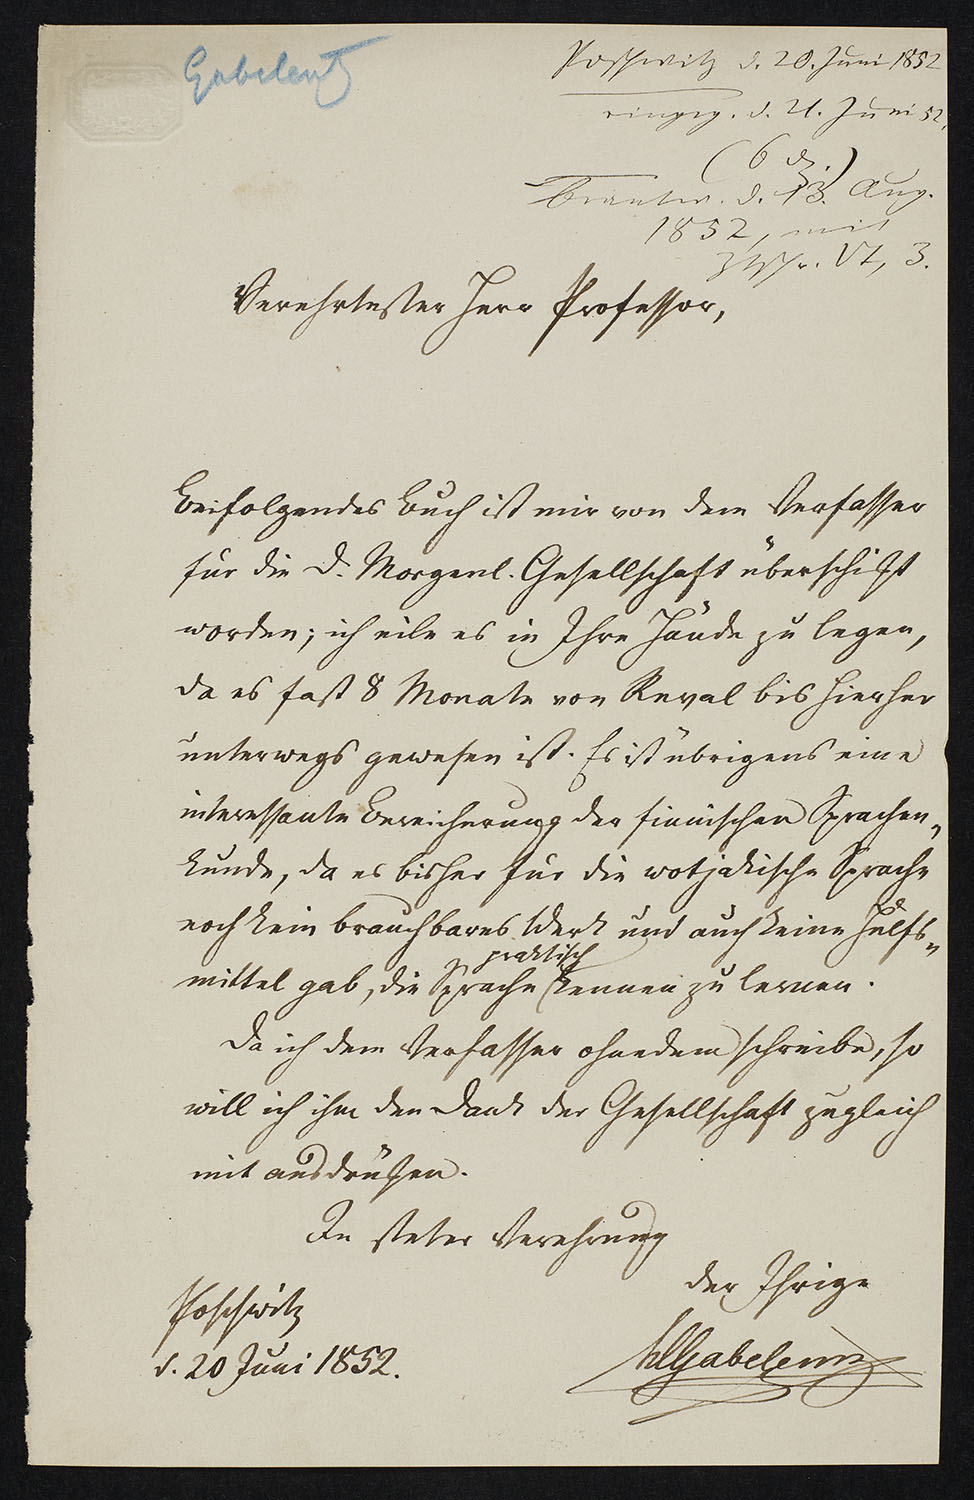 Gabelentz
Poschwitz d. 20. Juni 1852
eingeg. d. 21. Juni 52.
(6 )
Beantw. d. 13. Aug.
1852, mit
Ztschr. VI, 3.
Verehrtester Herr Professor,
Beifolgendes Buch ist mir von dem Verfasser
für die D. Morgenl. Gesellschaft überschikt
worden; ich eile es in Ihre Hände zu legen,
da es fast 8 Monate von Reval bis hierher
unterwegs gewesen ist. Es ist übrigens eine
interessante Bereicherung der finnischen Sprachen-
kunde, da es bisher für die wotjakische Sprache
noch kein brauchbares Werk und auch keine Hülfs-
mittel gab, die Sprache praktisch kennen zu lernen.
Da ich dem Verfasser ohnedem schreibe, so
will ich ihm den Dank der Gesellschaft zugleich
mit ausdrüken.
In steter Verehrung
der Ihrige
Poschwitz
d. 20 Juni 1852.
HCGabelentz